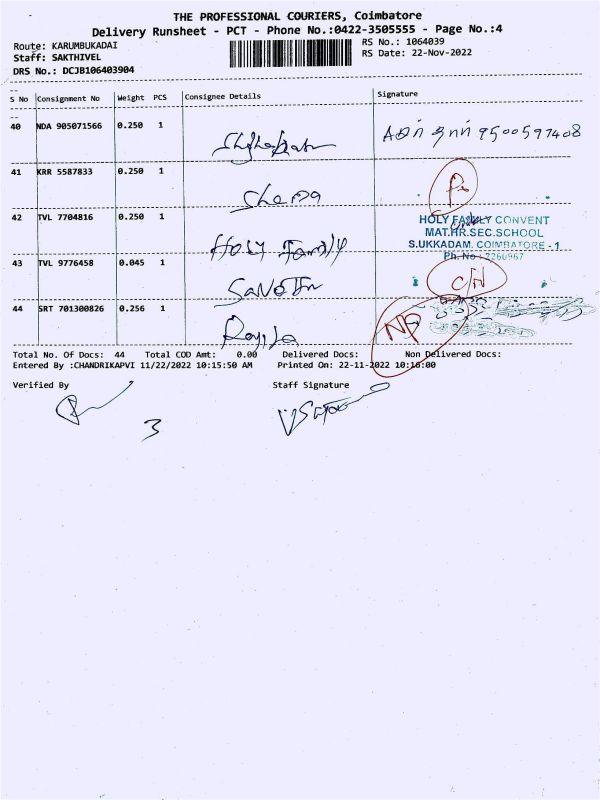 THE PROFESSIONAL COURIERS, Coimbatore
Delivery Runsheet - PCT - Phone No.:0422-3505555 - Page No.:4
Route: KARUMBUKADAI
RS No.: 1064039
Staff: SAKTHIVEL
RS Date: 22-Nov-2022
DRS No.: DCJB106403904
S No Consignment No Weight PCS Consignee Details Signature
40 NDA 905071566 0.250 1 9500597408
41 KRR 5587833 0.250 1
42 TVL 7704816 0.250 1 Holy Family
HOLY FAMILY CONVENT
MAT.HR.SEC.SCHOOL
S.UKKADAM, COIMBATORE - 1
Ph. No : 2260967
43 TVL 9776458 0.045 1 C/N
44 SRT 701300826 0.256 1 NP
Total No. Of Docs: 44 Total COD Amt: 0.00 Delivered Docs: Non Delivered Docs:
Entered By :CHANDRIKAPVI 11/22/2022 10:15:50 AM Printed On: 22-11-2022 10:16:00
Verified By Staff Signature
3